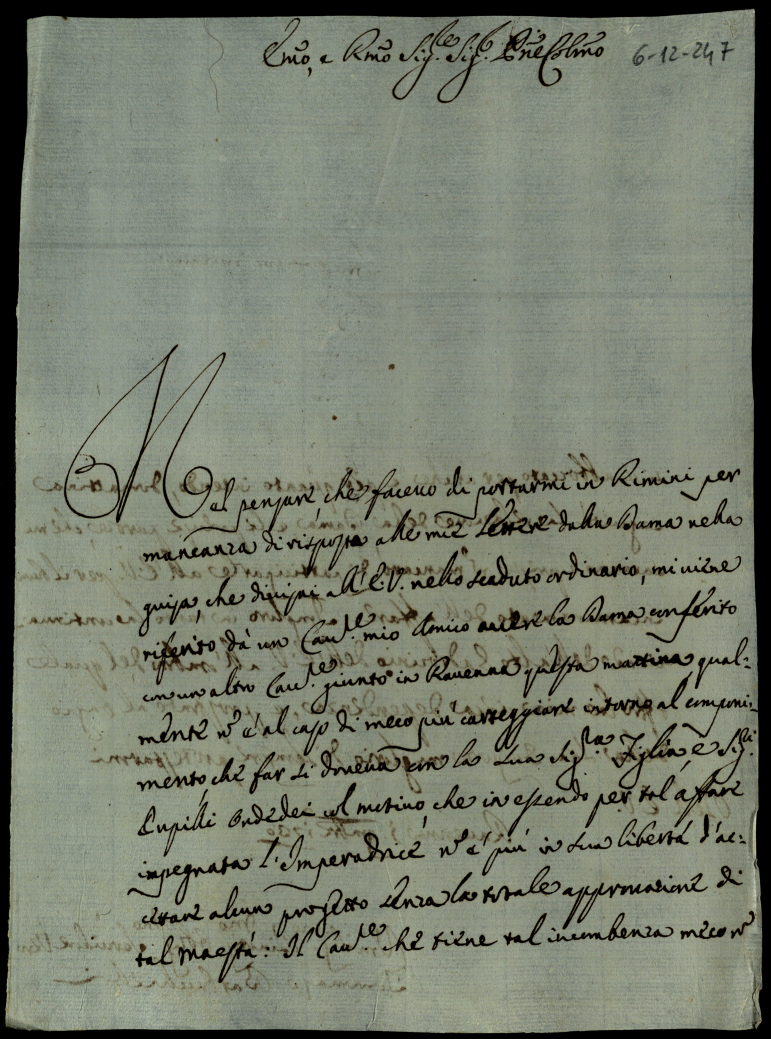 Emo, e Rmo Sig.re Sig.r Pne Colmo
6-12-247
Nel pensare, che facevo di portarmi in Rimini per
mancanza di risposta alle mie lettere dalla Dama nella
guisa, che divisai all'E.V. nello scaduto ordinario, mi viene
riferito dà un Cav.re mio Amico avere la Dama conferito
con un altro Cav.re giunto in Ravenna questa mattina, qual=
mente nõ è al caso di meco più carteggiare intorno al componi=
mento, che far si doveva con la sua Sig.ra Figlia, e Sig.ri
Pupilli Ondedei col motivo, che in essendo per tal affare
impegnata l'Imperadrice nõ è più in sua libertà d'ac=
cetare alcun progetto senza la totale approvazione di
tal Maestà: Il Cav.re che tiene tal incumbenza meco nõ